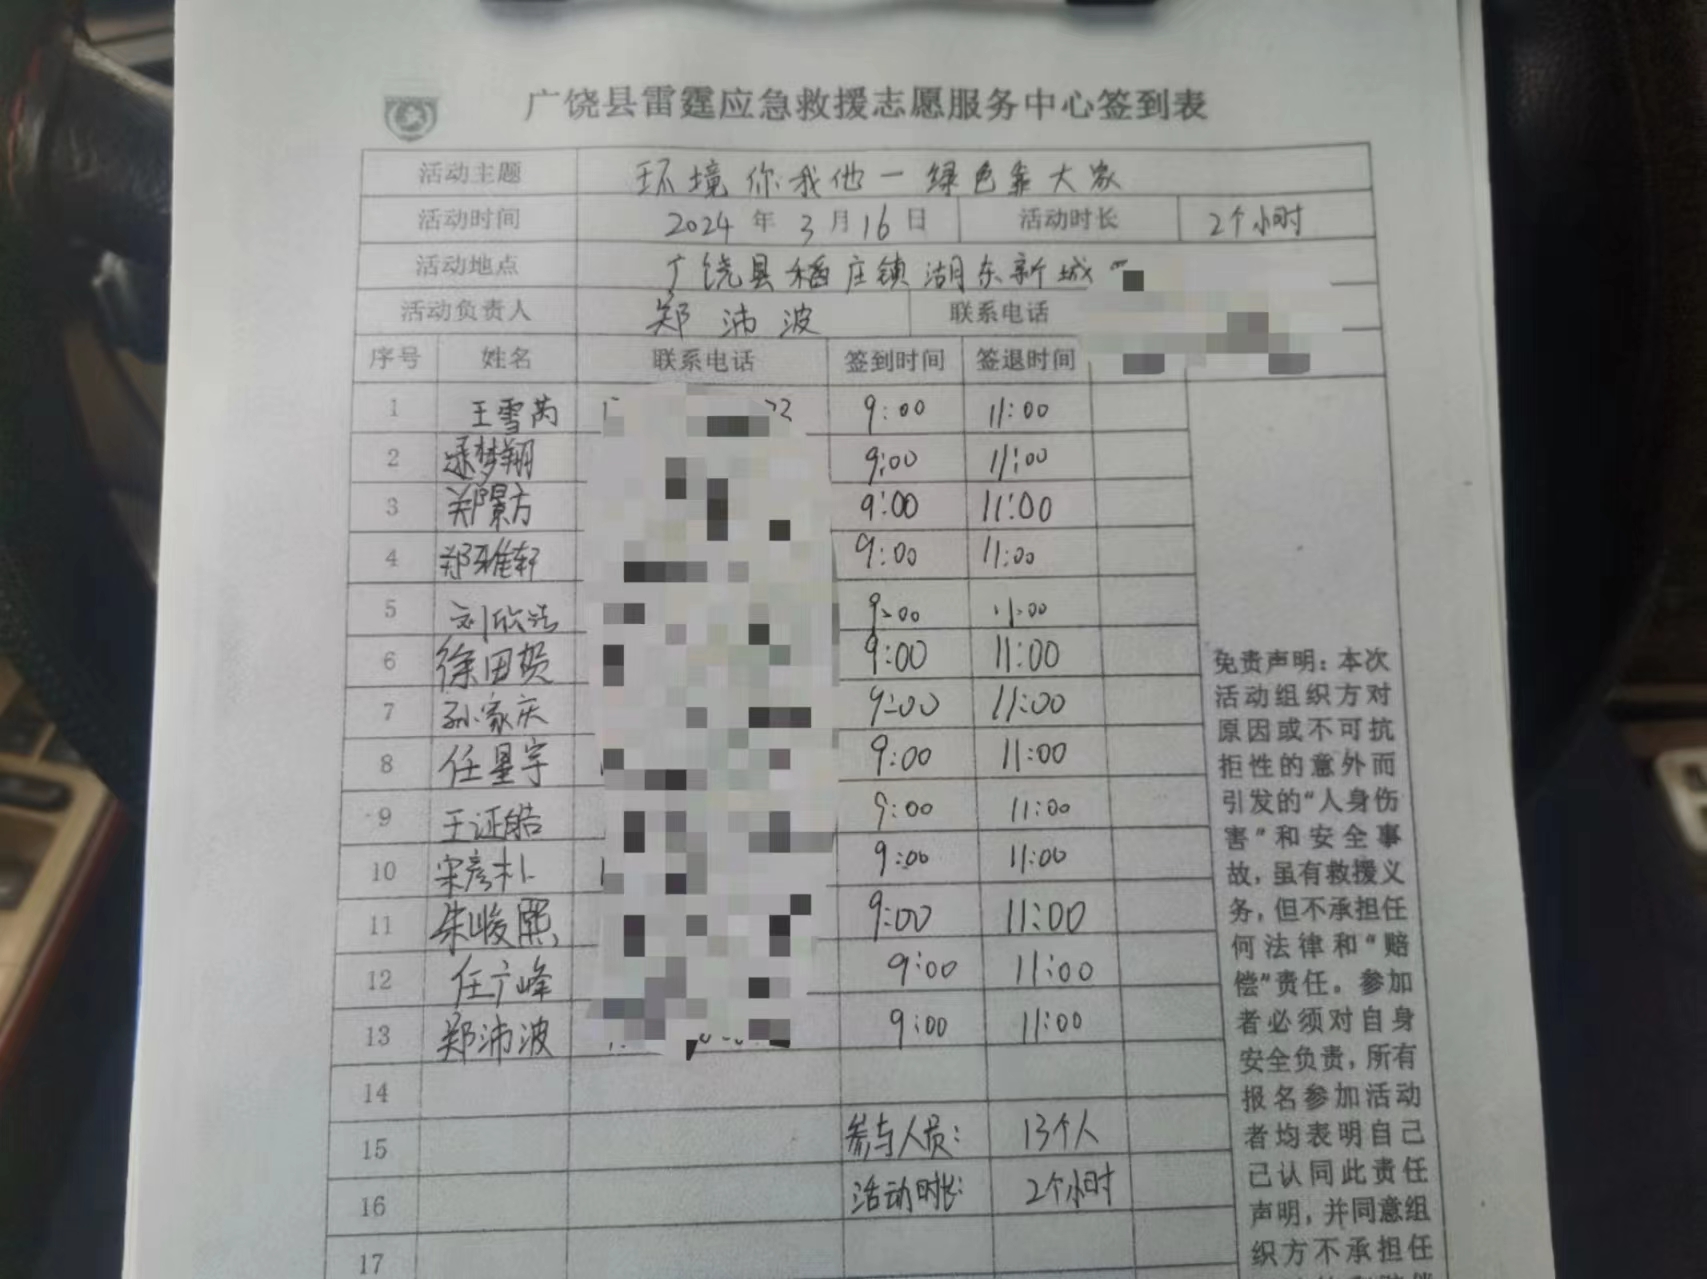 广饶县雷霆应急救援志愿服务中心签到表
活动主题 环境你我他一绿色靠大家
活动时间 2024年3月16日 活动时长 2个小时
活动地点 广饶县稻庄镇湖东新城
活动负责人 郑沛波 联系电话
序号 姓名 联系电话 签到时间 签退时间
1 王雪芮 9:00 11:00
2 梦翔 9:00 11:00
3 郑景方 9:00 11:00
4 郑雅轩 9:00 11:00
5 刘欣浩 9:00 11:00
6 徐田贺 9:00 11:00
7 孙家庆 9:00 11:00
8 任星宇 9:00 11:00
9 王证皓 9:00 11:00
10 宋彦朴 9:00 11:00
11 朱峻熙 9:00 11:00
12 任广峰 9:00 11:00
13 郑沛波 9:00 11:00
14
15 参与人员: 13个人
16 活动时长: 2个小时
17
免责声明：本次
活动组织方对
原因或不可抗
拒性的意外而
引发的“人身伤
害”和安全事
故，虽有救援义
务，但不承担任
何法律和“赔
偿”责任。参加
者必须对自身
安全负责，所有
报名参加活动
者均表明自己
已认同此责任
声明，并同意组
织方不承担任